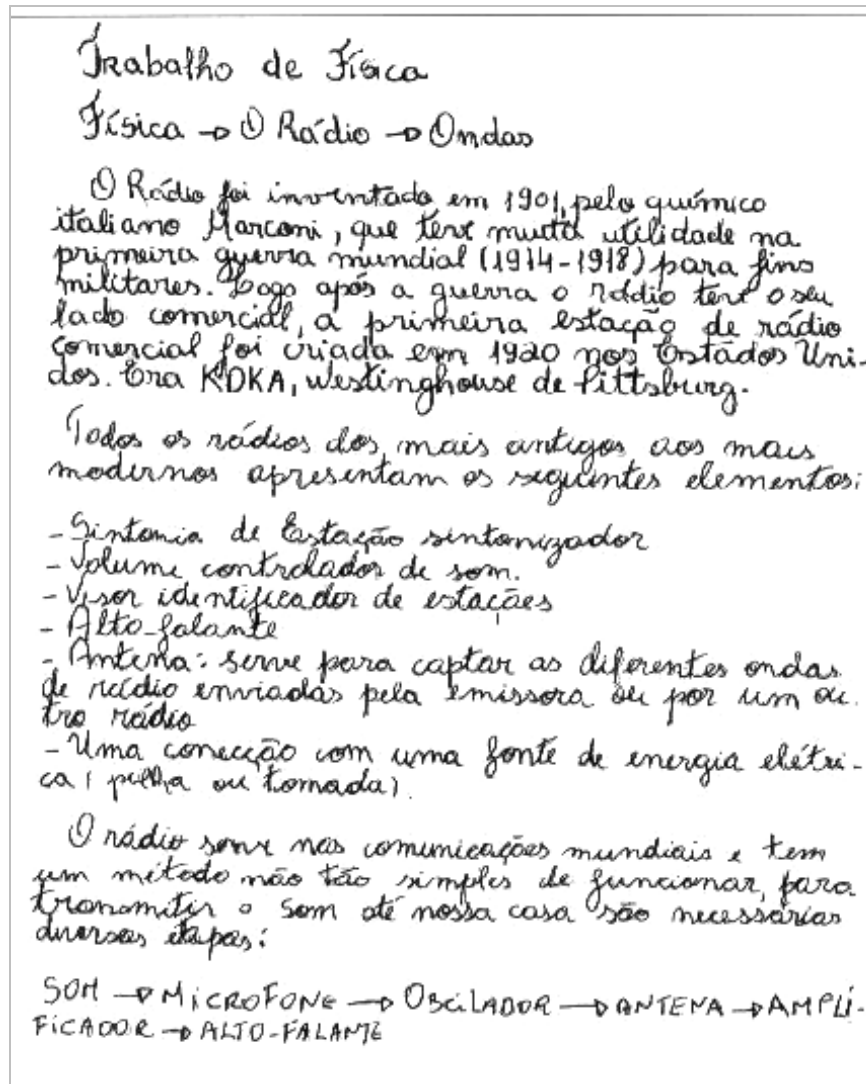 Trabalho de Física
Física → O Rádio → Ondas
O Rádio foi inventado em 1901, pelo químico
italiano Marconi, que teve muita utilidade na
primeira guerra mundial (1914-1918) para fins
militares. Logo após a guerra o rádio teve o seu
lado comercial, a primeira estação de rádio
comercial foi criada em 1920 nos Estados Uni-
dos. Era KDKA, Westinghouse de Pittsburg.
Todos os rádios dos mais antigos aos mais
modernos apresentam os seguintes elementos:
- Sintonia de Estação sintonizador
- Volume controlador de som.
- Visor identificador de estações
- Alto-falante
- Antena: serve para captar as diferentes ondas
de rádio enviadas pela emissora ou por um ou-
tro rádio
- Uma conecção com uma fonte de energia elétri-
ca (pilha ou tomada).
O rádio serve nas comunicações mundiais e tem
um método não tão simples de funcionar, para
transmitir o som até nossa casa são necessárias
diversas etapas:
SOM → MICROFONE → OSCILADOR → ANTENA → AMPLI-
FICADOR → ALTO-FALANTE